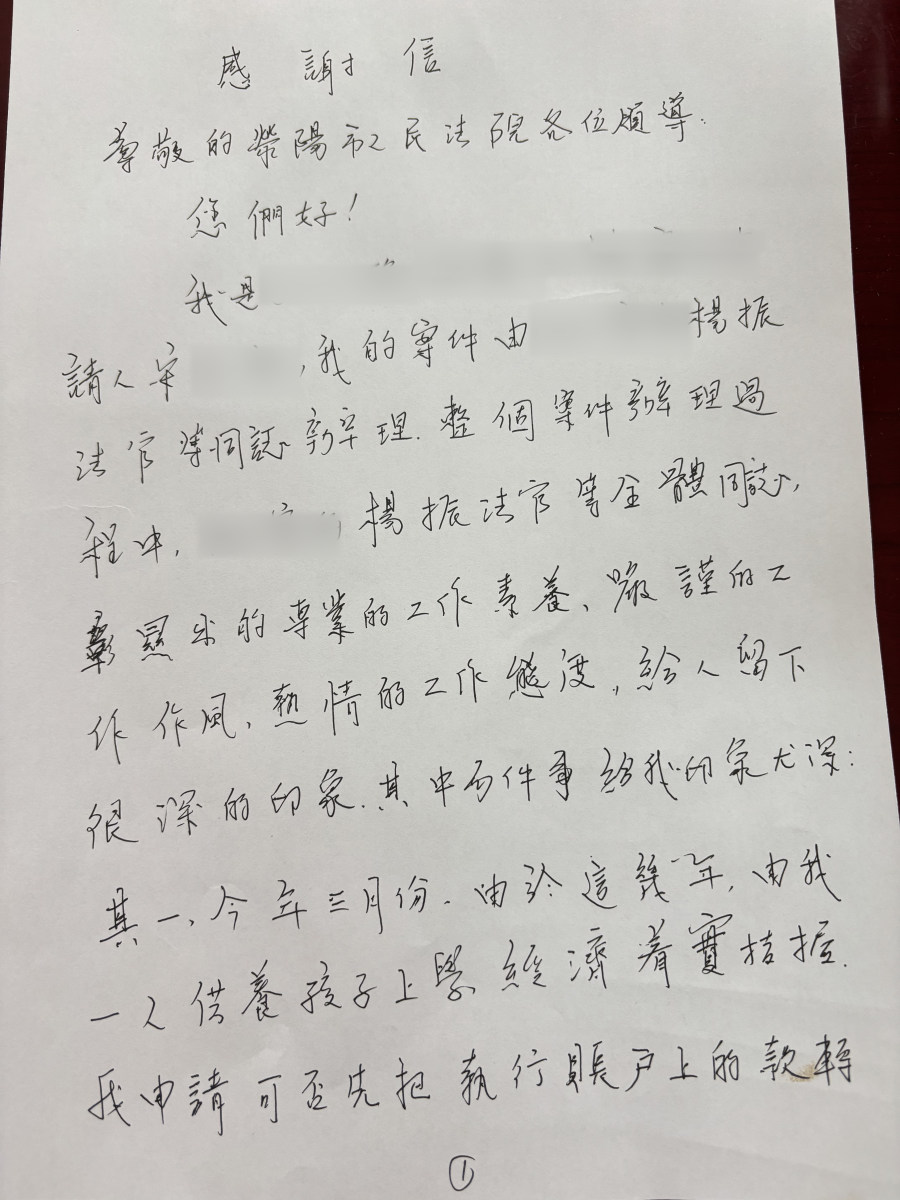 感謝信
尊敬的滎陽市人民法院各位領導:
您們好!
我是
請人宋 ,我的案件由 楊振
法官等同誌辦理.整個案件辦理過
程中, 楊振法官等全體同誌,
彰顯出的專業的工作素養、嚴謹的工
作作風、熱情的工作態度,給人留下
很深的印象.其中兩件事給我印象尤深:
其一,今年三月份.由於這幾年,由我
一人供養孩子上學經濟着實拮据.
我申請可否先把執行賬戶上的款轉
1